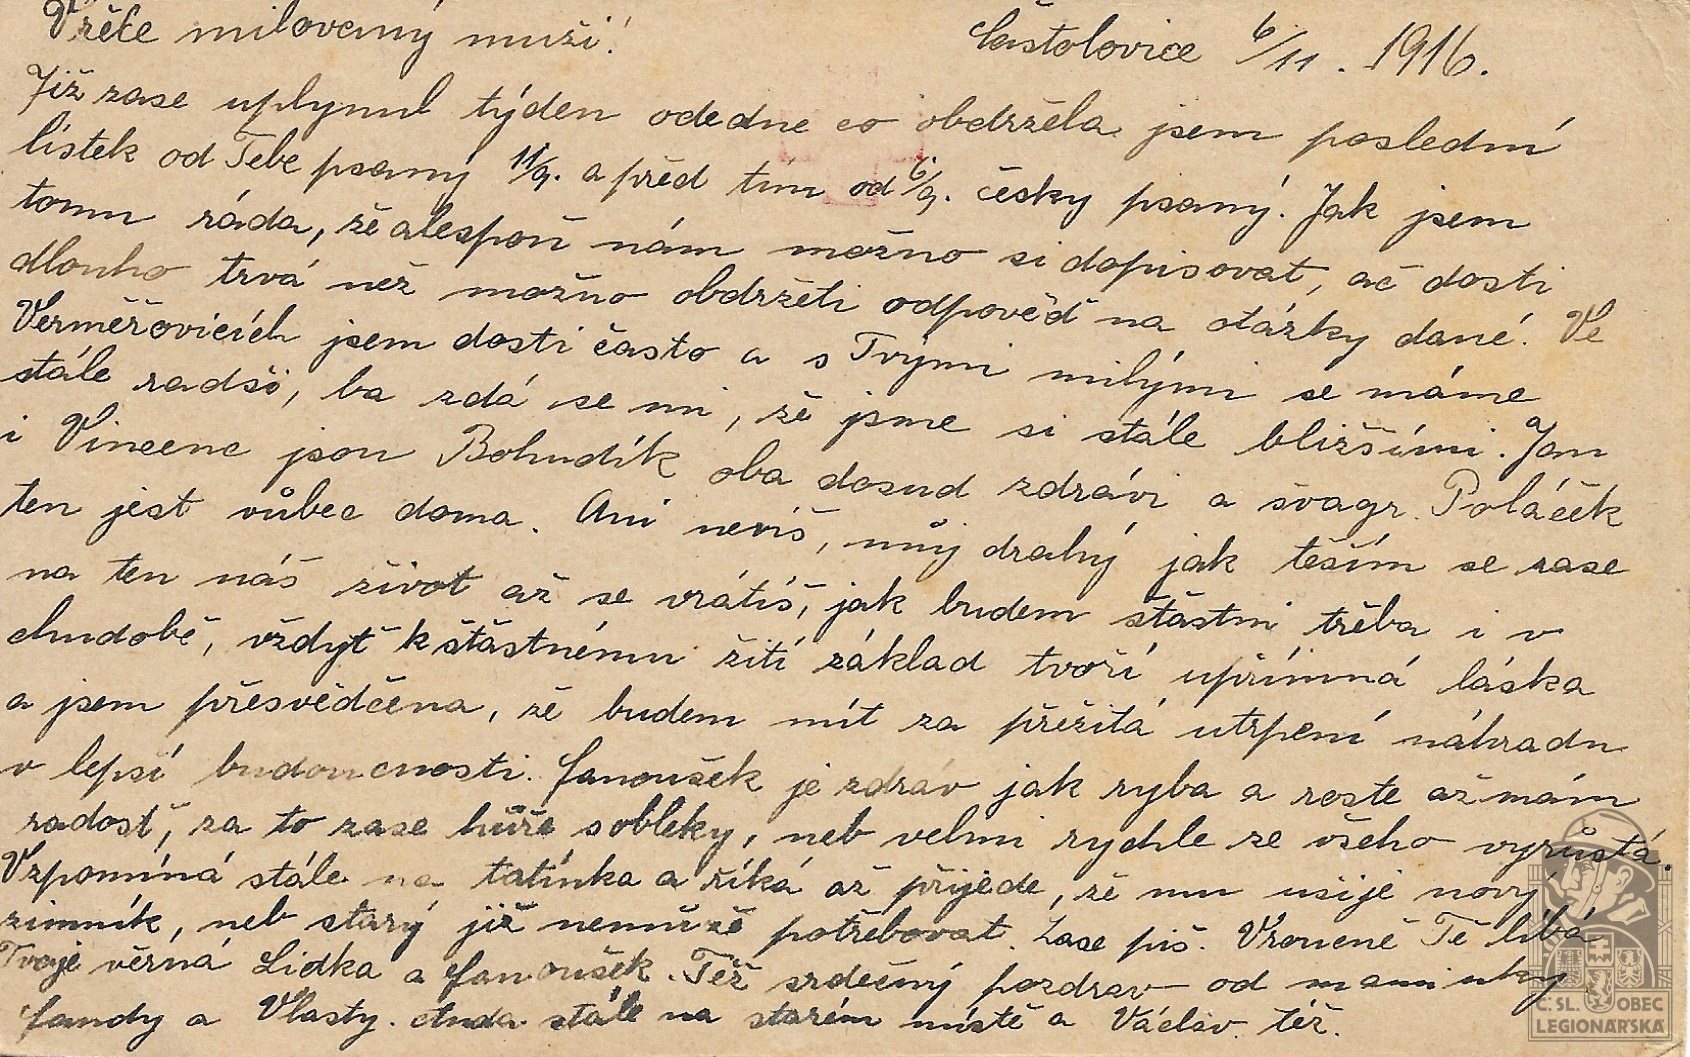 Vřele milovaný muži! Častolovice 6/11. 1916.
Již zase uplynul týden ode dne co obdržela jsem poslední
lístek od Tebe psaný 11/9. a před tím od 6/9. česky psaný. Jak jsem
tomu ráda, že alespoň nám možno si dopisovat, ač dosti
dlouho trvá než možno obdržeti odpověď na otázky dané. Ve
Verměřovicích jsem dosti často a s Tvými milými se máme
stále radši, ba zdá se mi, že jsme si stále bližšími. Jan
i Vincenc jsou Bohudík oba dosud zdrávi a švagr. Poláček
ten jest vůbec doma. Ani nevíš, můj drahý jak těším se zase
na ten náš život až se vrátíš, jak budem šťastni třeba i v
chudobě, vždyť k šťastnému žití základ tvoří upřímná láska
a jsem přesvědčena, že budem mít za přežitá utrpení náhradu
v lepší budoucnosti. Fanoušek je zdráv jak ryba a roste až mám
radosť, za to zase hůře s obleky, neb velmi rychle ze všeho vyrůstá.
Vzpomíná stále na tatínka a říká až přijede, že mu ušije nový
zimník, neb starý již nemůže potřebovat. Zase piš. Vroucně Tě líbá
Tvoje věrná Lidka a Fanoušek. Též srdečný pozdrav od maminky
Fandy a Vlasty. Anda stále na starém místě a Václav. též.
Č. SL. OBEC
LEGIONÁŘSKÁ